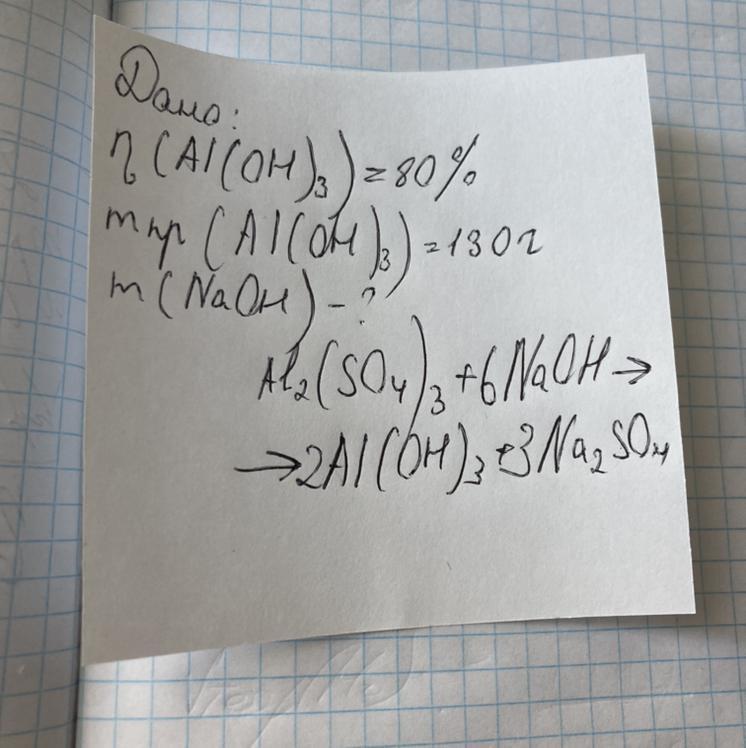 Дано:
η(Al(OH)₃)=80%
mпр(Al(OH)₃)=130г
m(NaOH)-?
Al₂(SO₄)₃+6NaOH→
→2Al(OH)₃+3Na₂SO₄